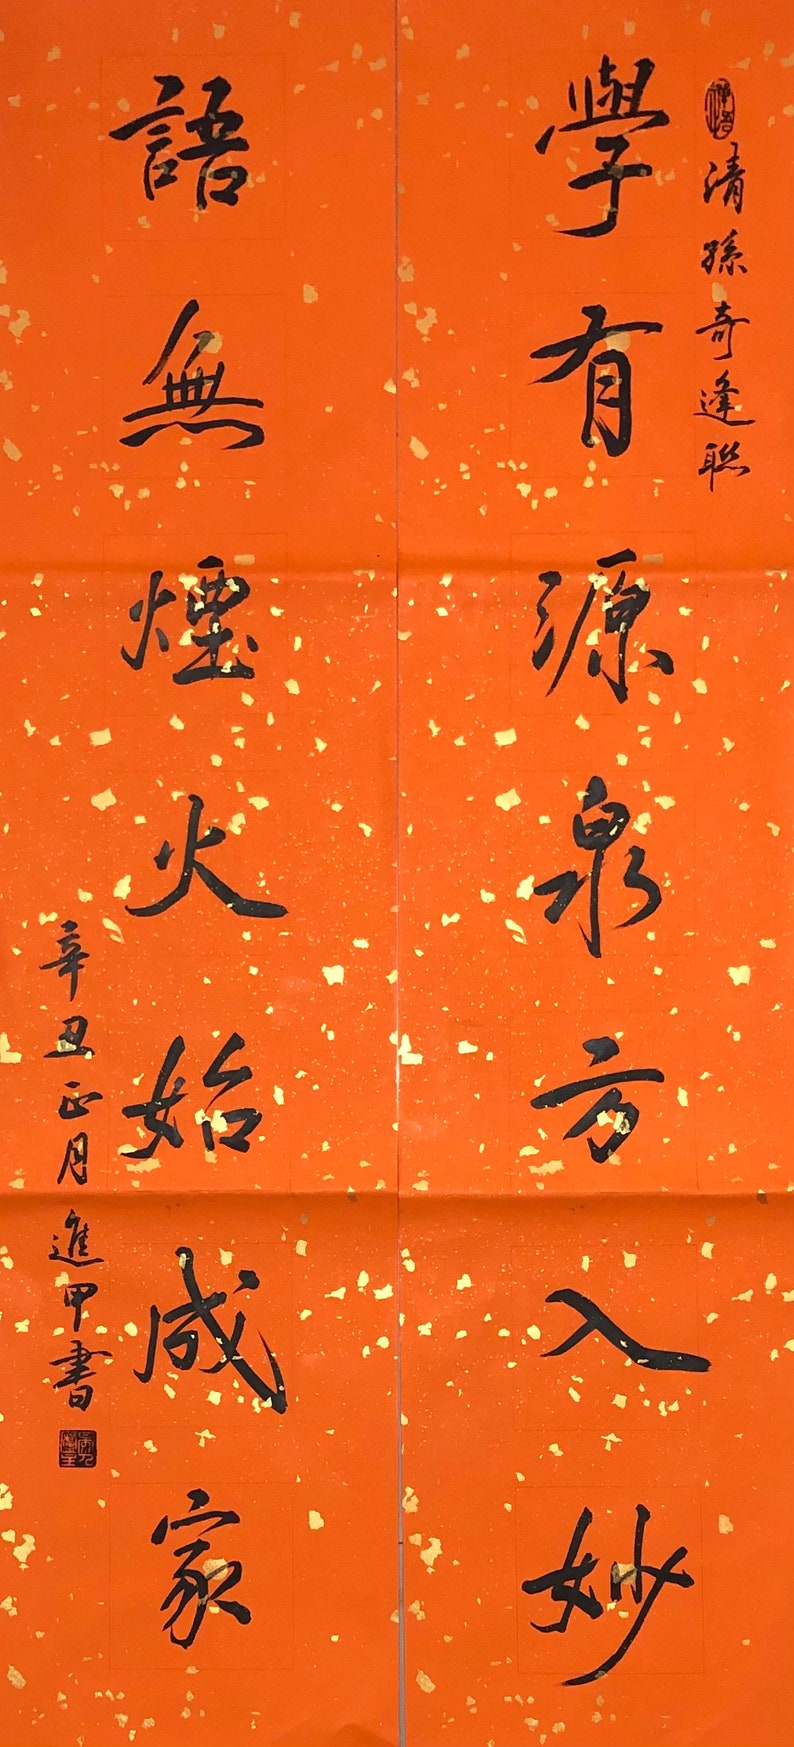 清孫奇逢聯
學有源泉方入妙
語無煙火始成家
辛丑正月進甲書